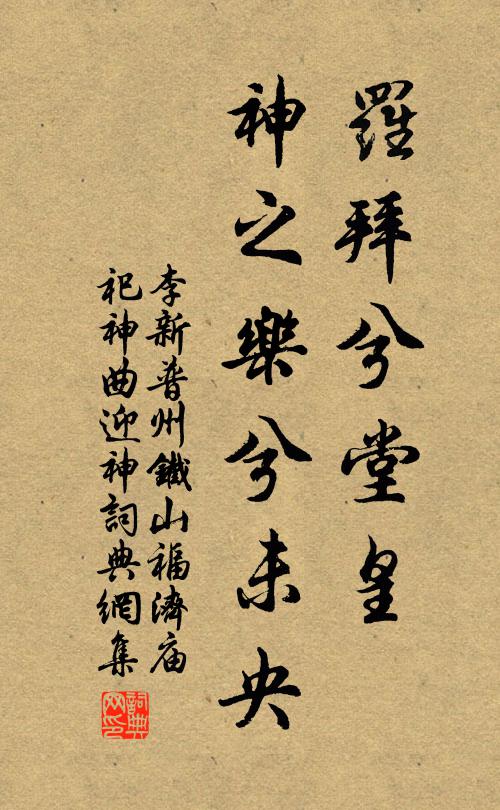 羅拜兮堂皇
神之樂兮未央
李新普州鐵山福濟庙
祀神曲迎神詞典網集
詞典网印